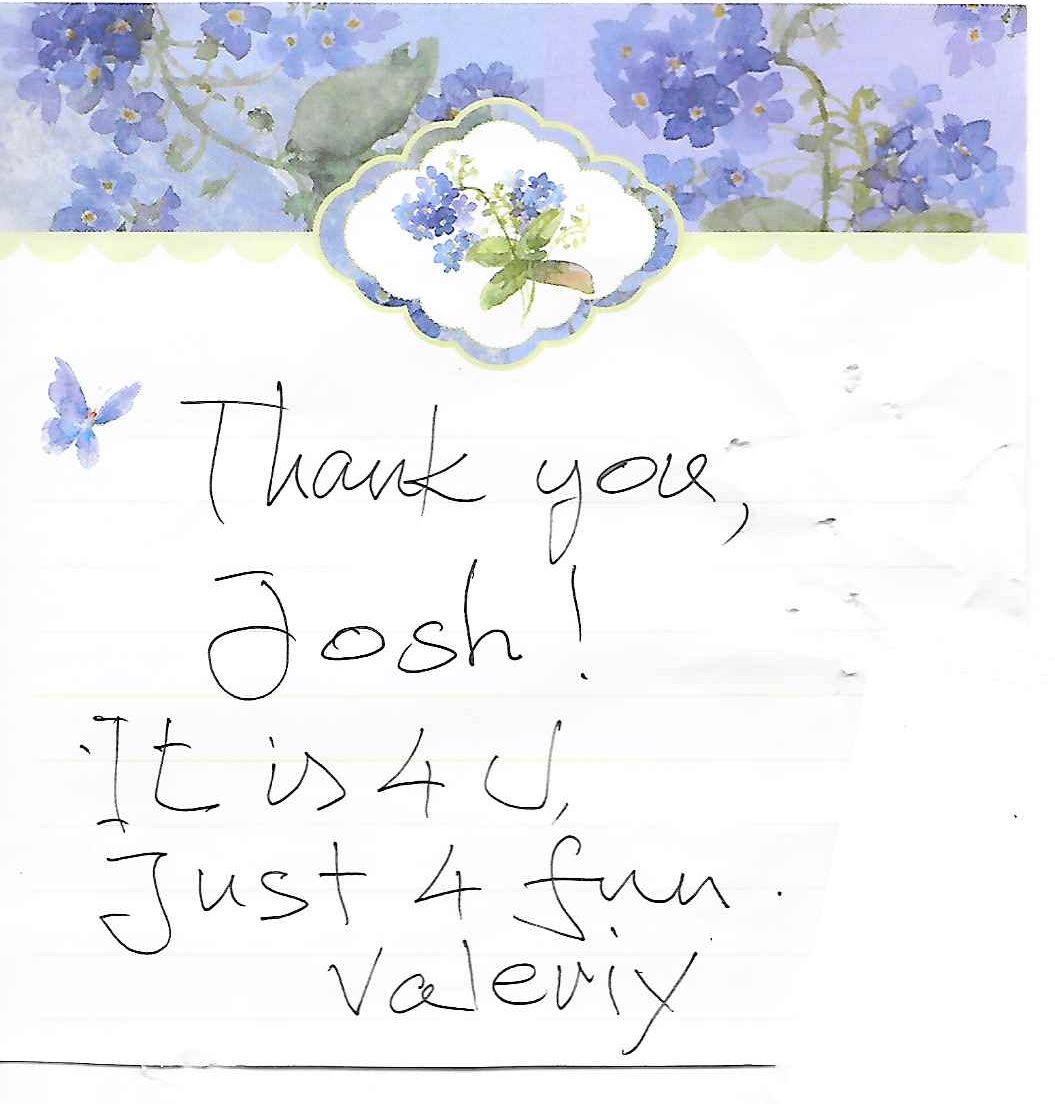 Thank you,
Josh!
It is 4 U,
Just 4 fun.
Valeriy